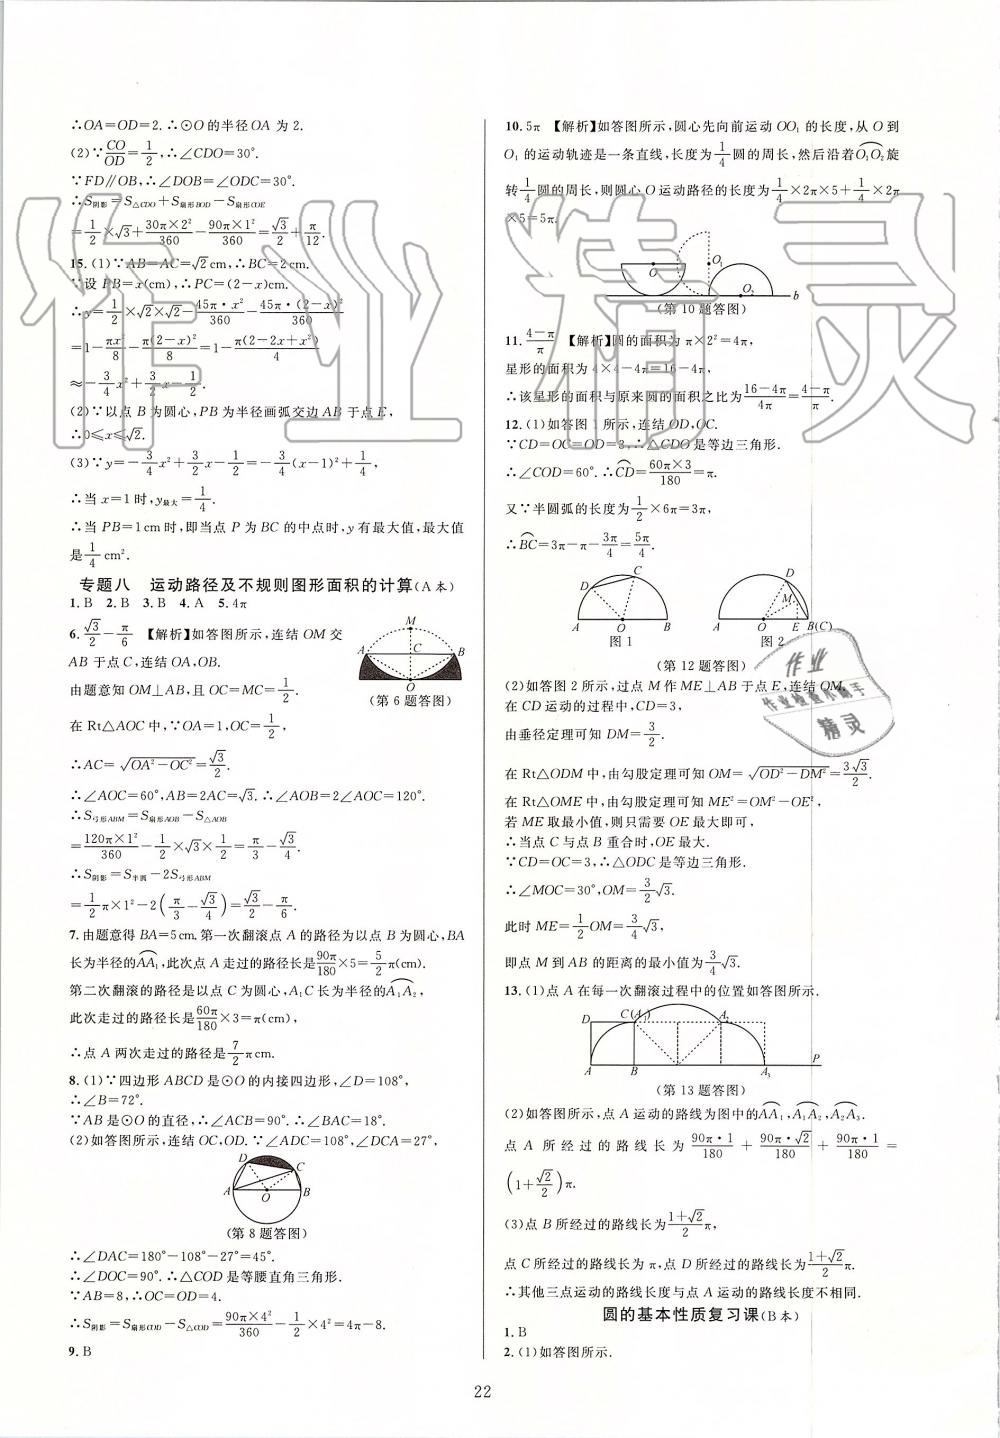 ∴OA=OD=2.∴⊙O的半径OA为2.
(2)∵CO/OD=1/2,∴∠CDO=30°.
∵FD∥OB,∴∠DOB=∠ODC=30°.
∴S阴影=S△CDO+S扇形BOD-S扇形COE
=1/2×√3+30π×2²/360-90π×1²/360=√3/2+π/12.
15.(1)∵AB=AC=√2cm,∴BC=2cm.
∵设PB=x(cm),∴PC=(2-x)cm.
∴y=1/2×√2×√2-45π·x²/360-45π·(2-x)²/360
=1-πx²/8-π(2-x)²/8=1-π(2-2x+x²)/4
≈-3/4x²+3/2x-1/2.
(2)∵以点B为圆心,PB为半径画弧交边AB于点E,
∴0≤x≤√2.
(3)∵y=-3/4x²+3/2x-1/2=-3/4(x-1)²+1/4,
∴当x=1时,y最大=1/4.
∴当PB=1cm时,即当点P为BC的中点时,y有最大值,最大值
是1/4cm².
专题八 运动路径及不规则图形面积的计算(A本)
1.B 2.B 3.B 4.A 5.4π
6.√3/2-π/6 【解析】如答图所示,连结OM交
AB于点C,连结OA,OB.
由题意知OM⊥AB,且OC=MC=1/2.
在Rt△AOC中,∵OA=1,OC=1/2,
∴AC=√(OA²-OC²)=√3/2.
∴∠AOC=60°,AB=2AC=√3.∴∠AOB=2∠AOC=120°.
∴S弓形ABM=S扇形AOB-S△AOB
=120π×1²/360-1/2×√3×1/2=π/3-√3/4.
∴S阴影=S半圆-2S弓形ABM
=1/2π×1²-2(π/3-√3/4)=√3/2-π/6.
M
A C B
O
(第6题答图)
7.由题意得BA=5cm.第一次翻滚点A的路径为以点B为圆心,BA
长为半径的⌒AA₁,此次点A走过的路径是90π/180×5=5/2π(cm).
第二次翻滚的路径是以点C为圆心,A₁C长为半径的⌒A₁A₂,
此次走过的路径长是60π/180×3=π(cm),
∴点A两次走过的路径是7/2πcm.
8.(1)∵四边形ABCD是⊙O的内接四边形,∠D=108°,
∴∠B=72°.
∵AB是⊙O的直径,∴∠ACB=90°.∴∠BAC=18°.
(2)如答图所示,连结OC,OD.∵∠ADC=108°,∠DCA=27°,
D C
A O B
(第8题答图)
∴∠DAC=180°-108°-27°=45°.
∴∠DOC=90°.∴△COD是等腰直角三角形.
∵AB=8,∴OC=OD=4.
∴S阴影=S扇形COD-S△COD=90π×4²/360-1/2×4²=4π-8.
9.B
10.5π 【解析】如答图所示,圆心先向前运动OO₁的长度,从O到
O₁的运动轨迹是一条直线,长度为1/4圆的周长,然后沿着⌒O₁O₂旋
转1/4圆的周长,则圆心O运动路径的长度为1/4×2π×5+1/4×2π
×5=5π.
O O₁ O₂ b
(第10题答图)
11.(4-π)/π 【解析】圆的面积为π×2²=4π,
星形的面积为4×4-4π=16-4π,
∴该星形的面积与原来圆的面积之比为(16-4π)/4π=(4-π)/π.
12.(1)如答图1所示,连结OD,OC.
∵CD=OC=OD=3,∴△CDO是等边三角形.
∴∠COD=60°.∴⌒CD=60π×3/180=π.
又∵半圆弧的长度为1/2×6π=3π,
∴⌒BC=3π-π-3π/4=5π/4.
D C
A O B
图1
D
M
A O E B(C)
图2
(第12题答图)
(2)如答图2所示,过点M作ME⊥AB于点E,连结OM.
在CD运动的过程中,CD=3,
由垂径定理可知DM=3/2.
在Rt△ODM中,由勾股定理可知OM=√(OD²-DM²)=3√3/2.
在Rt△OME中,由勾股定理可知ME²=OM²-OE²,
若ME取最小值,则只需要OE最大即可.
∴当点C与点B重合时,OE最大.
∵CD=OC=3,∴△ODC是等边三角形.
∴∠MOC=30°,OM=3/2√3.
此时ME=1/2OM=3/4√3,
即点M到AB的距离的最小值为3/4√3.
13.(1)点A在每一次翻滚过程中的位置如答图所示.
D C(A₁) A₂
A B A₃ P
(第13题答图)
(2)如答图所示,点A运动的路线为图中的⌒AA₁,⌒A₁A₂,⌒A₂A₃.
点A所经过的路线长为90π·1/180+90π·√2/180+90π·1/180=
(1+√2/2)π.
(3)点B所经过的路线长为(1+√2)/2π,
点C所经过的路线长为π,点D所经过的路线长为(1+√2)/2π.
∴其他三点运动的路线长度与点A运动的路线长度不相同.
圆的基本性质复习课(B本)
1.B
2.(1)如答图所示.
22
作业精灵
作业
作业检查小帮手
精灵